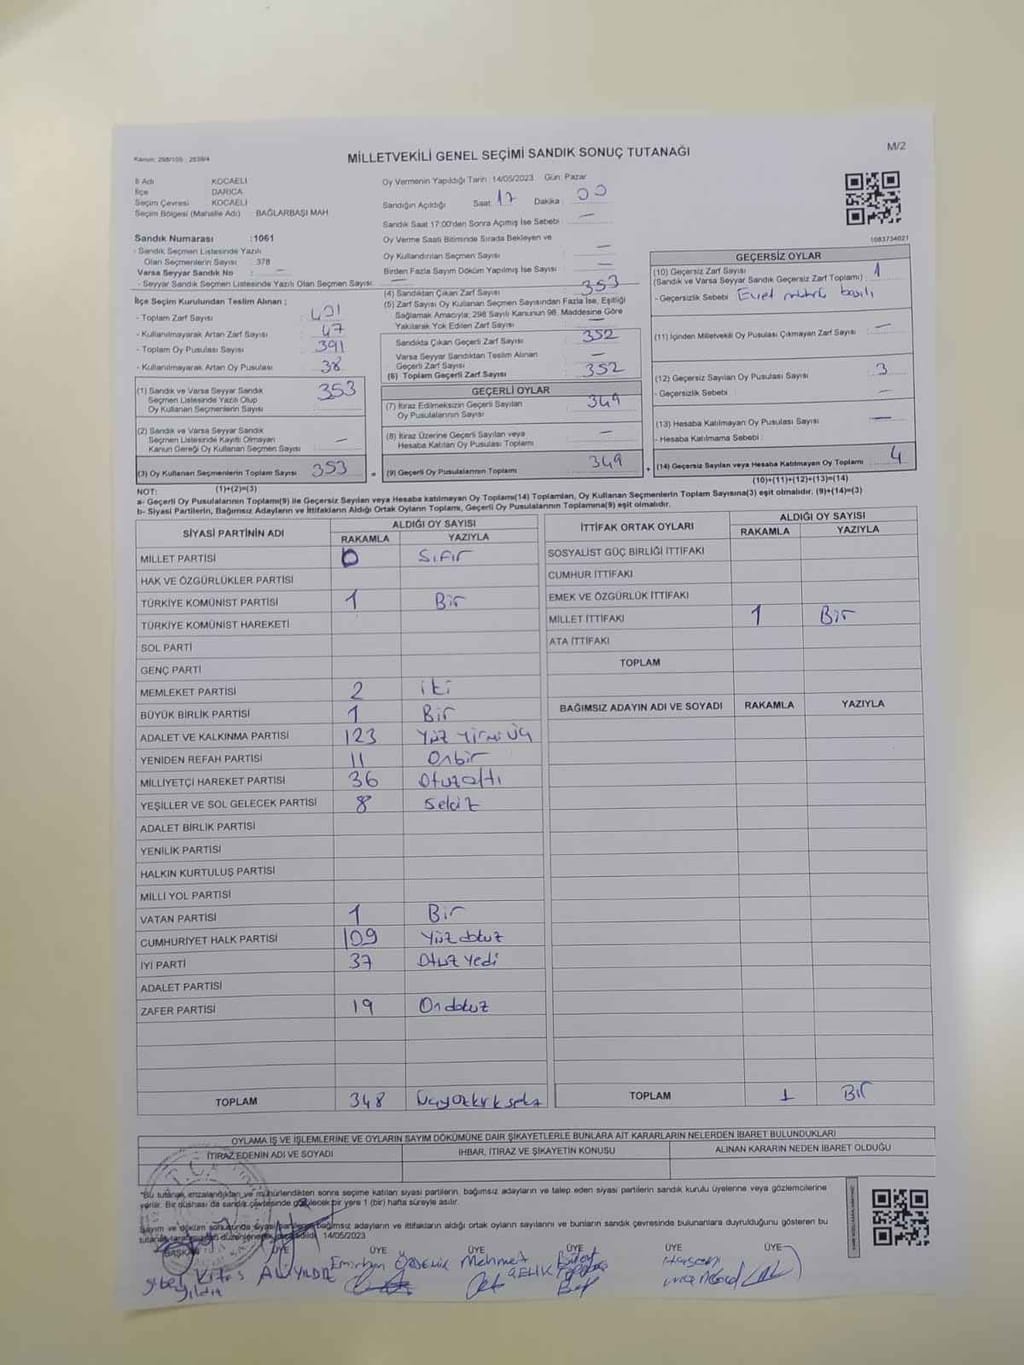 Kanun: 298/105 : 2839/4
MİLLETVEKİLİ GENEL SEÇİMİ SANDIK SONUÇ TUTANAĞI
M/2
İl Adı KOCAELİ
İlçe DARICA
Seçim Çevresi KOCAELİ
Seçim Bölgesi (Mahalle Adı) BAĞLARBAŞI MAH
Sandık Numarası :1061
- Sandık Seçmen Listesinde Yazılı
Olan Seçmenlerin Sayısı 378
Varsa Seyyar Sandık No : —
- Seyyar Sandık Seçmen Listesinde Yazılı Olan Seçmen Sayısı: —
İlçe Seçim Kurulundan Teslim Alınan ;
- Toplam Zarf Sayısı
- Kullanılmayarak Artan Zarf Sayısı 47
- Toplam Oy Pusulası Sayısı 391
- Kullanılmayarak Artan Oy Pusulası 38
(1) Sandık ve Varsa Seyyar Sandık
Seçmen Listesinde Yazılı Olup
Oy Kullanan Seçmenlerin Sayısı 353
(2) Sandık ve Varsa Seyyar Sandık
Seçmen Listesinde Kayıtlı Olmayan
Kanun Gereği Oy Kullanan Seçmen Sayısı —
(3) Oy Kullanan Seçmenlerin Toplam Sayısı 353
(1)+(2)=(3)
Oy Vermenin Yapıldığı Tarih : 14/05/2023 Gün: Pazar
Sandığın Açıldığı Saat 17 Dakika : 00
Sandık Saat 17:00'den Sonra Açımış İse Sebebi : —
Oy Verme Saati Bitiminde Sırada Bekleyen ve
Oy Kullandırılan Seçmen Sayısı —
Birden Fazla Sayım Döküm Yapılmış İse Sayısı —
(4) Sandıktan Çıkan Zarf Sayısı 353
(5) Zarf Sayısı Oy Kullanan Seçmen Sayısından Fazla İse, Eşitliği
Sağlamak Amacıyla; 298 Sayılı Kanunun 98. Maddesine Göre
Yakılarak Yok Edilen Zarf Sayısı —
Sandıkta Çıkan Geçerli Zarf Sayısı 352
Varsa Seyyar Sandıktan Teslim Alınan
Geçerli Zarf Sayısı —
(6) Toplam Geçerli Zarf Sayısı 352
GEÇERLİ OYLAR
(7) İtiraz Edilmeksizin Geçerli Sayılan
Oy Pusulalarının Sayısı 349
(8) İtiraz Üzerine Geçerli Sayılan veya
Hesaba Katılan Oy Pusulası Toplamı —
(9) Geçerli Oy Pusulalarının Toplamı 349
1083734021
GEÇERSİZ OYLAR
(10) Geçersiz Zarf Sayısı 1
(Sandık ve Varsa Seyyar Sandık Geçersiz Zarf Toplamı) :
- Geçersizlik Sebebi Evet mührü basılı
(11) İçinden Milletvekili Oy Pusulası Çıkmayan Zarf Sayısı : —
(12) Geçersiz Sayılan Oy Pusulası Sayısı 3
- Geçersizlik Sebebi : —
(13) Hesaba Katılmayan Oy Pusulası Sayısı —
- Hesaba Katılmama Sebebi :
(14) Geçersiz Sayılan veya Hesaba Katılmayan Oy Toplamı 4
(10)+(11)+(12)+(13)=(14)
NOT:
a- Geçerli Oy Pusulalarının Toplamı(9) ile Geçersiz Sayılan veya Hesaba katılmayan Oy Toplamı(14) Toplamları, Oy Kullanan Seçmenlerin Toplam Sayısına(3) eşit olmalıdır. (9)+(14)=(3)
b- Siyasi Partilerin, Bağımsız Adayların ve İttifakların Aldığı Ortak Oyların Toplamı, Geçerli Oy Pusulalarının Toplamına(9) eşit olmalıdır.
SİYASİ PARTİNİN ADI ALDIĞI OY SAYISI
RAKAMLA YAZIYLA
MİLLET PARTİSİ 0 Sıfır
HAK VE ÖZGÜRLÜKLER PARTİSİ
TÜRKİYE KOMÜNİST PARTİSİ 1 Bir
TÜRKİYE KOMÜNİST HAREKETİ
SOL PARTİ
GENÇ PARTİ
MEMLEKET PARTİSİ 2 iki
BÜYÜK BİRLİK PARTİSİ 1 Bir
ADALET VE KALKINMA PARTİSİ 123 Yüz Yirmi Üç
YENİDEN REFAH PARTİSİ 11 Onbir
MİLLİYETÇİ HAREKET PARTİSİ 36 Otuzaltı
YEŞİLLER VE SOL GELECEK PARTİSİ 8 Sekiz
ADALET BİRLİK PARTİSİ
YENİLİK PARTİSİ
HALKIN KURTULUŞ PARTİSİ
MİLLİ YOL PARTİSİ
VATAN PARTİSİ 1 Bir
CUMHURİYET HALK PARTİSİ 109 Yüz dokuz
İYİ PARTİ 37 Otuz Yedi
ADALET PARTİSİ
ZAFER PARTİSİ 19 Ondokuz
TOPLAM 348 Üçyüzkırksekiz
İTTİFAK ORTAK OYLARI ALDIĞI OY SAYISI
RAKAMLA YAZIYLA
SOSYALİST GÜÇ BİRLİĞİ İTTİFAKI
CUMHUR İTTİFAKI
EMEK VE ÖZGÜRLÜK İTTİFAKI
MİLLET İTTİFAKI 1 Bir
ATA İTTİFAKI
TOPLAM
BAĞIMSIZ ADAYIN ADI VE SOYADI RAKAMLA YAZIYLA
TOPLAM 1 Bir
OYLAMA İŞ VE İŞLEMLERİNE VE OYLARIN SAYIM DÖKÜMÜNE DAİR ŞİKAYETLERLE BUNLARA AİT KARARLARIN NELERDEN İBARET BULUNDUKLARI
İTİRAZ EDENİN ADI VE SOYADI İHBAR, İTİRAZ VE ŞİKAYETİN KONUSU ALINAN KARARIN NEDEN İBARET OLDUĞU
*Bu tutanak imzalandıktan ve mühürlendikten sonra seçime katılan siyasi partilerin, bağımsız adayların ve talep eden siyasi partilerin sandık kurulu üyelerine veya gözlemcilerine
verilir. Bir nüshası da sandık çevresinde görülecek bir yere 1 (bir) hafta süreyle asılır.
Sayım ve döküm sonucunda siyasi partilerin, bağımsız adayların ve ittifakların aldığı ortak oyların sayılarını ve bunların sandık çevresinde bulunanlara duyrulduğunu gösteren bu
tutanak tarafımızdan düzenlenerek imzalandı. 14/05/2023
BAŞKAN ÜYE ÜYE ÜYE ÜYE ÜYE ÜYE
ALİ YILDIZ Mehmet Hasan
Yıldız ÇELİK